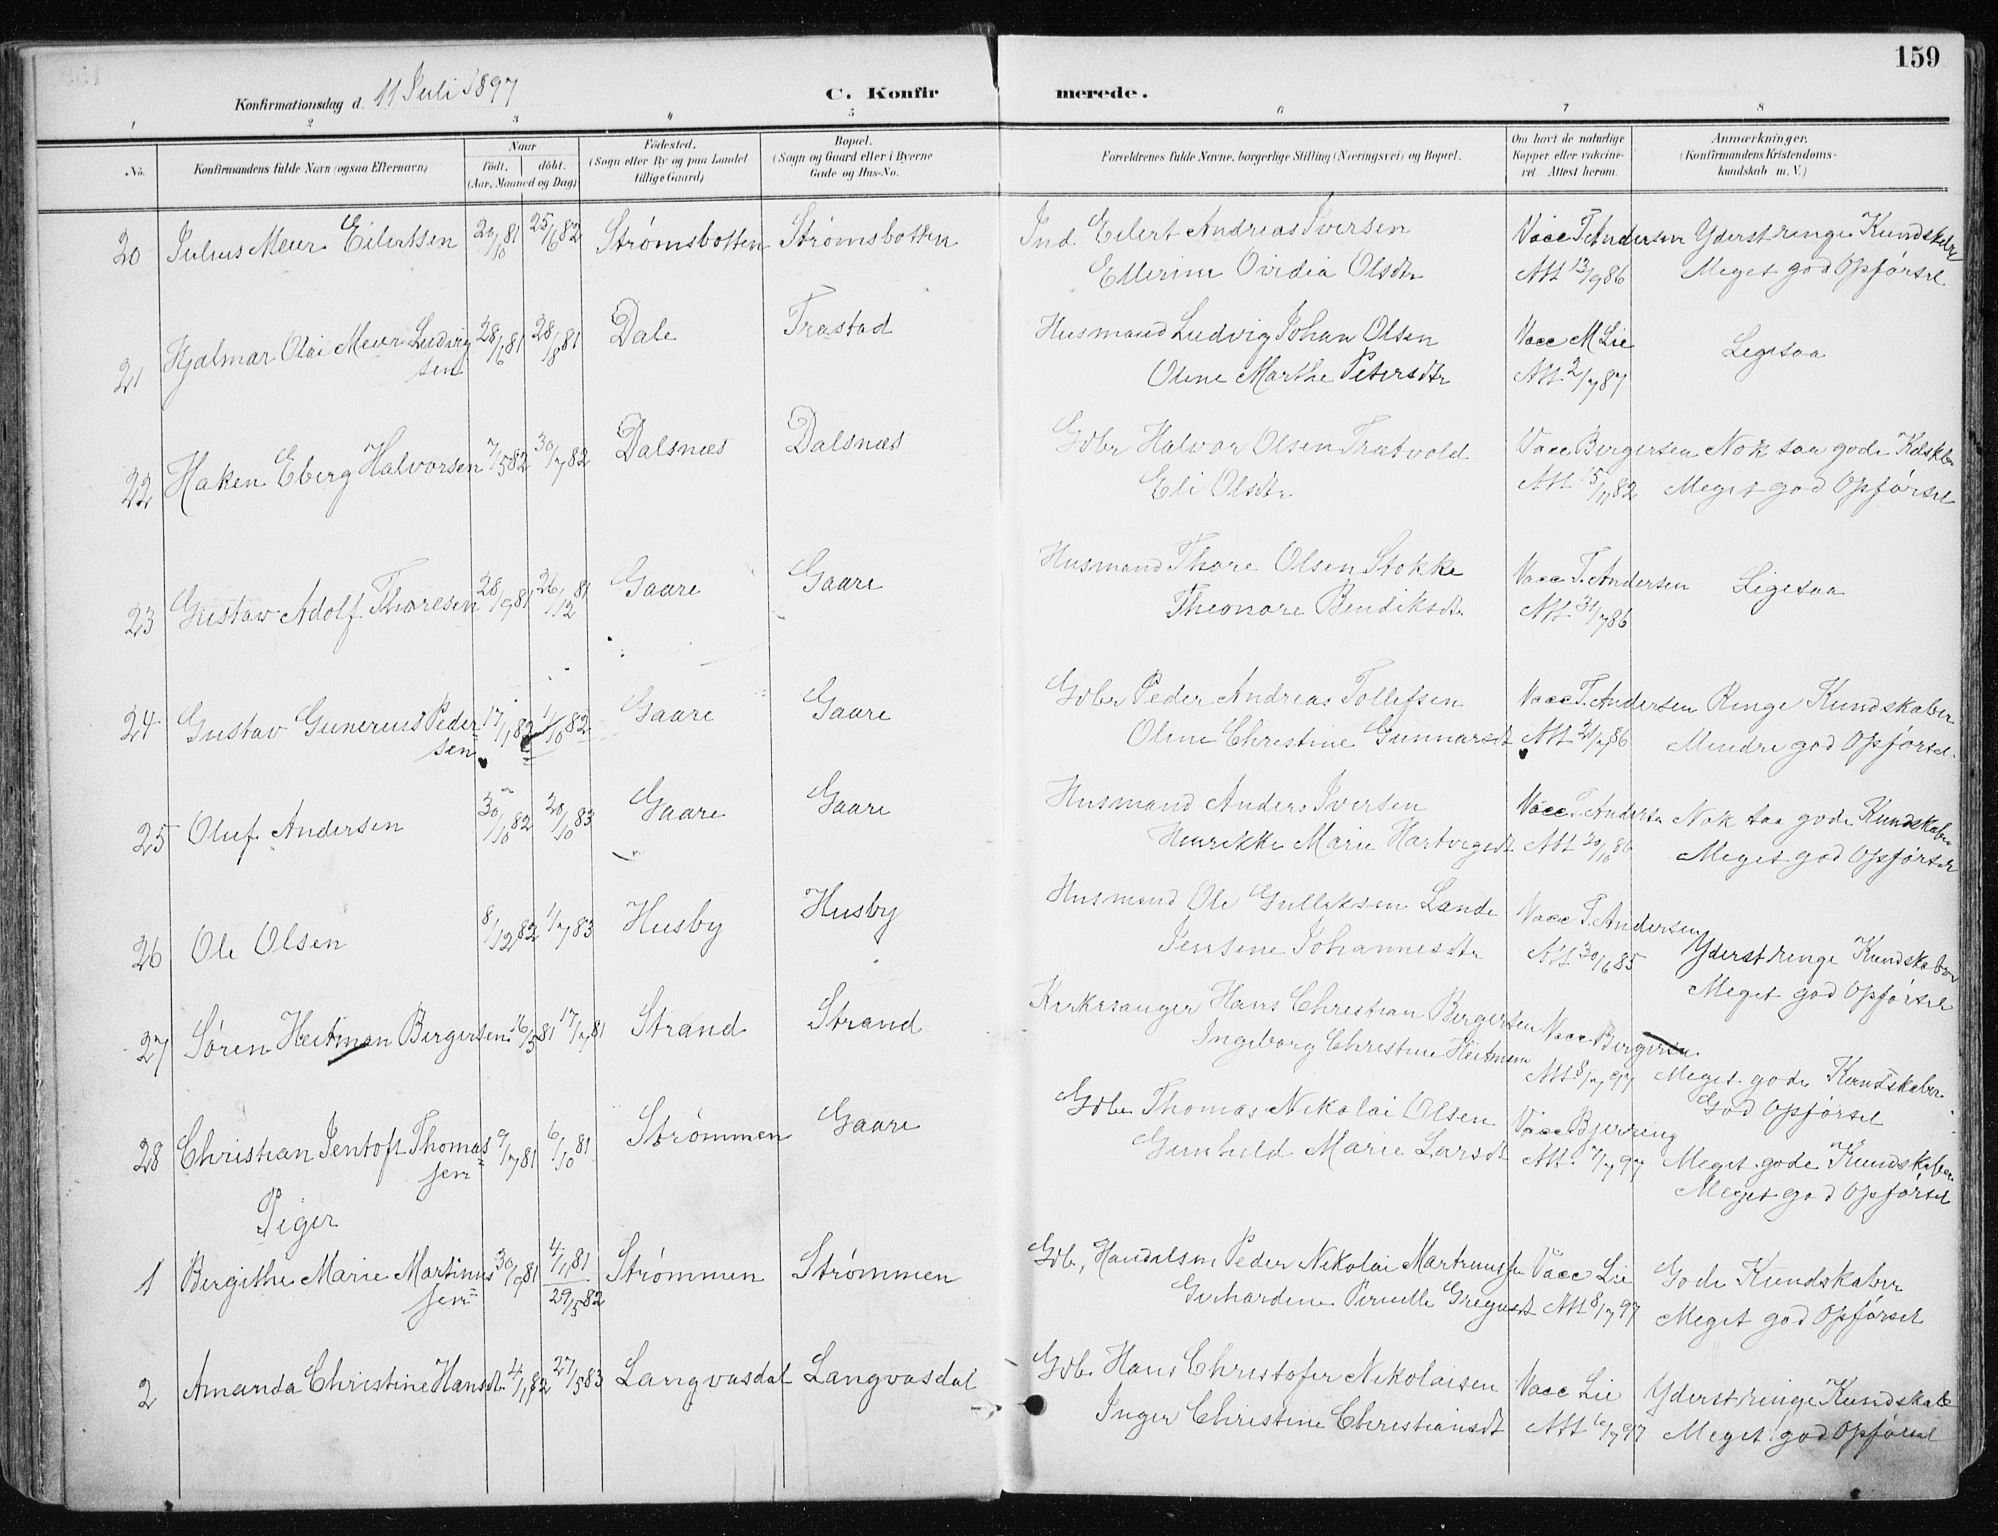 159
Konfirmationsdag d. 11 Juli 1897
C. Konfirmerede.
1 2 3 4 5 6 7 8
No. Konfirmandens fulde Navn (ogsaa Efternavn) Naar født. døbt. (Aar, Maaned og Dag) Fødested. (Sogn eller By og paa Landet tillige Gaard) Bopæl. (Sogn og Gaard eller i Byerne Gade og Hus-No. Forældrenes fulde Navne, borgerlige Stilling (Næringsvei) og Bopæl. Om havt de naturlige Kopper eller vakcineret. Attest herom. Anmærkninger. (Konfirmandens Kristendomskundskab m. V.)
20 Julius Meier Eilertsen 20/10 81 25/6 82 Strømsbotten Strømsbotten Ind Eilert Andreas Iversen Vacc T. Andersen Yderst ringe Kundskaber
Ellerine Ovidia Olsdtr Att 13/9 86 Meget god Opførsel
21 Hjalmar Olai Meier Ludvig 28/6 81 28/8 81 Dale Trastad Husmand Ludvig Johan Olsen Vacc M Lie Ligesaa
sen Oline Marthe Petersdtr Att. 2/7 87
22 Haken Eberg Halvorsen 7/5 82 30/7 82 Dalsnæs Dalsnæs Gdbr Halvor Olsen Tratvold Vacc Bergersen Nok saa gode Kdskbr
Eli Olsdtr Att 15/11 82 Meget god Opførsel
23 Gustav Adolf Thoresen 28/9 81 26/12 81 Gaare Gaare Husmand Thore Olsen Stokke Vacc T. Andersen Ligesaa
Theonore Bendiksdtr Att 31/7 86
24 Gustav Gunerius Peder= 17/1 82 1/10 82 Gaare Gaare Gdbr Peder Andreas Tollefsen Vacc T. Andersen Ringe Kundskaber
sen Oline Christine Gunnarsdt Att 21/7 86 Mindre god Opførsel.
25 Oluf Andersen 30/10 82 20/10 83 Gaare Gaare Husmand Anders Iversen Vacc T. Andersen Nok saa gode Kundskaber
Henrikke Marie Hartvigsdt Att 20/10 86 Meget god Opførsel
26 Ole Olsen 8/12 82 1/7 83 Husby Husby Husmand Ole Gulliksen Lande Vacc T. Andersen
Jensine Johannesdtr Att 30/6 85 Yderst ringe Kundskaber
Meget god Opførsel
27 Søren Heitman Bergersen 16/5 81 17/7 81 Strand Strand Kirkesanger Hans Christian Bergersen Vacc Bergersen
Ingeborg Christine Heitmann Att 8/7 97 Meget gode Kundskaber
God Opførsel
28 Christian Jentoft Thomas= 9/7 81 6/10 81 Strømmen Gaare Gdbr Thomas Nikolai Olsen Vacc Bjerring
sen Gunhild Marie Larsdt Att. 7/7 97 Meget gode Kundskaber
Meget god Opførsel
Piger
1 Bergithe Marie Martinus 30/9 81 4/11 81 Strømmen Strømmen Gdbr, Handelsm Peder Nikolai Martinussen Vacc Lie Gode Kundskaber
sen 29/5 82 Gerhardine Pernille Gregusdt Att 8/7 97 Meget god Opførsel
2 Amanda Christine Hansdtr 4/1 82 27/5 83 Langvasdal Langvasdal Gdbr. Hans Christofer Nikolaisen Vacc Lie Yderst ringe Kundskab
Inger Christine Christiansdt Att 10/7 97 Meget god Opførsel